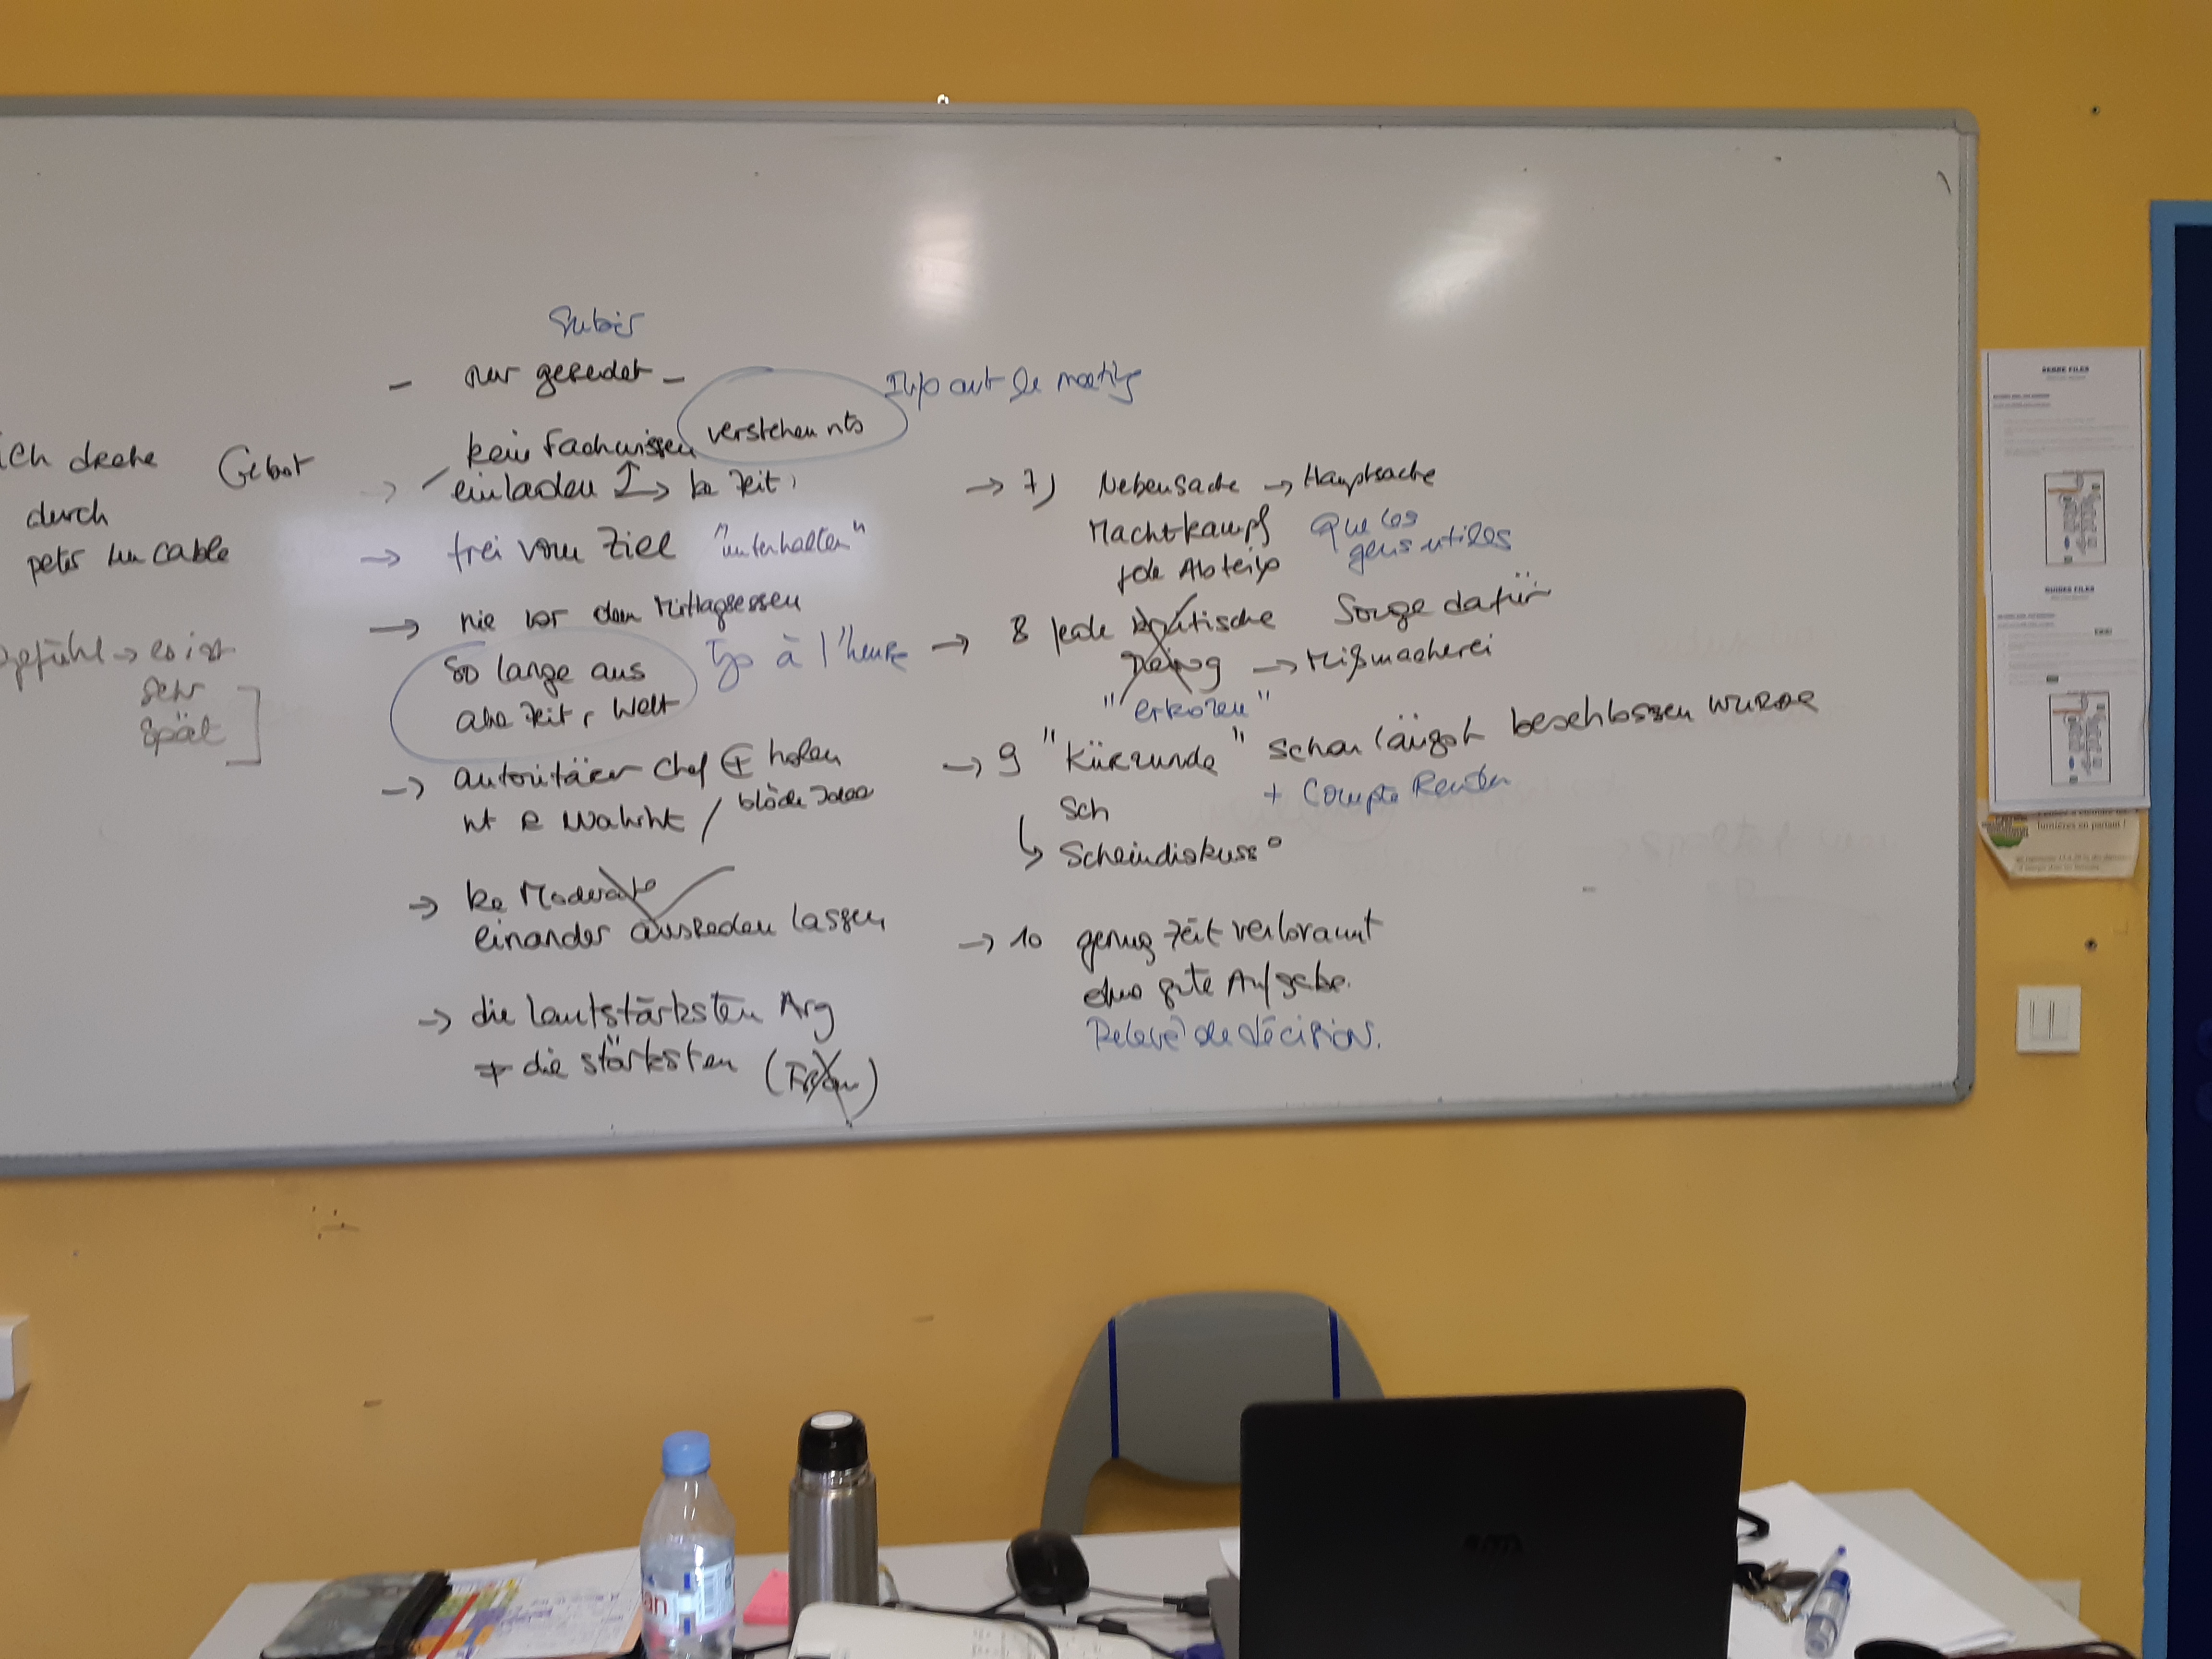 ich drehe
durch
peter un cable
Gebot
gefühl → es ist
sehr
spät
Subir
– nur geredet –
kein Fachwissen verstehen nts
Info avt le meeting
→ einladen → ke Zeit
→ frei vom Ziel "unterhalten"
→ nie vor dem Mittagsessen
so lange aus
alle Zeit r Welt
à l'heure
→ autoritärer Chef ⊕ holen
nt e Wahrht / blöde Ideen
→ ke Moderat°
einander ausreden lassen
→ die lautstärksten Arg
≠ die stärksten
→ 7) Nebensache → Hauptsache
Machtkampf
jede Abteilg
Que les
gens utiles
→ 8 jede kritische Sorge dafür
→ Mißmacherei
"erkoren"
→ 9 "Kürrunde" schon längst beschlossen wurde
+ Compte Rendu
Sch
↳ Scheindiskuss°
→ 10 genug Zeit verbrannt
ohne gute Aufgabe.
Relevé de décision.
GUIDES FILES
lumières en partant !